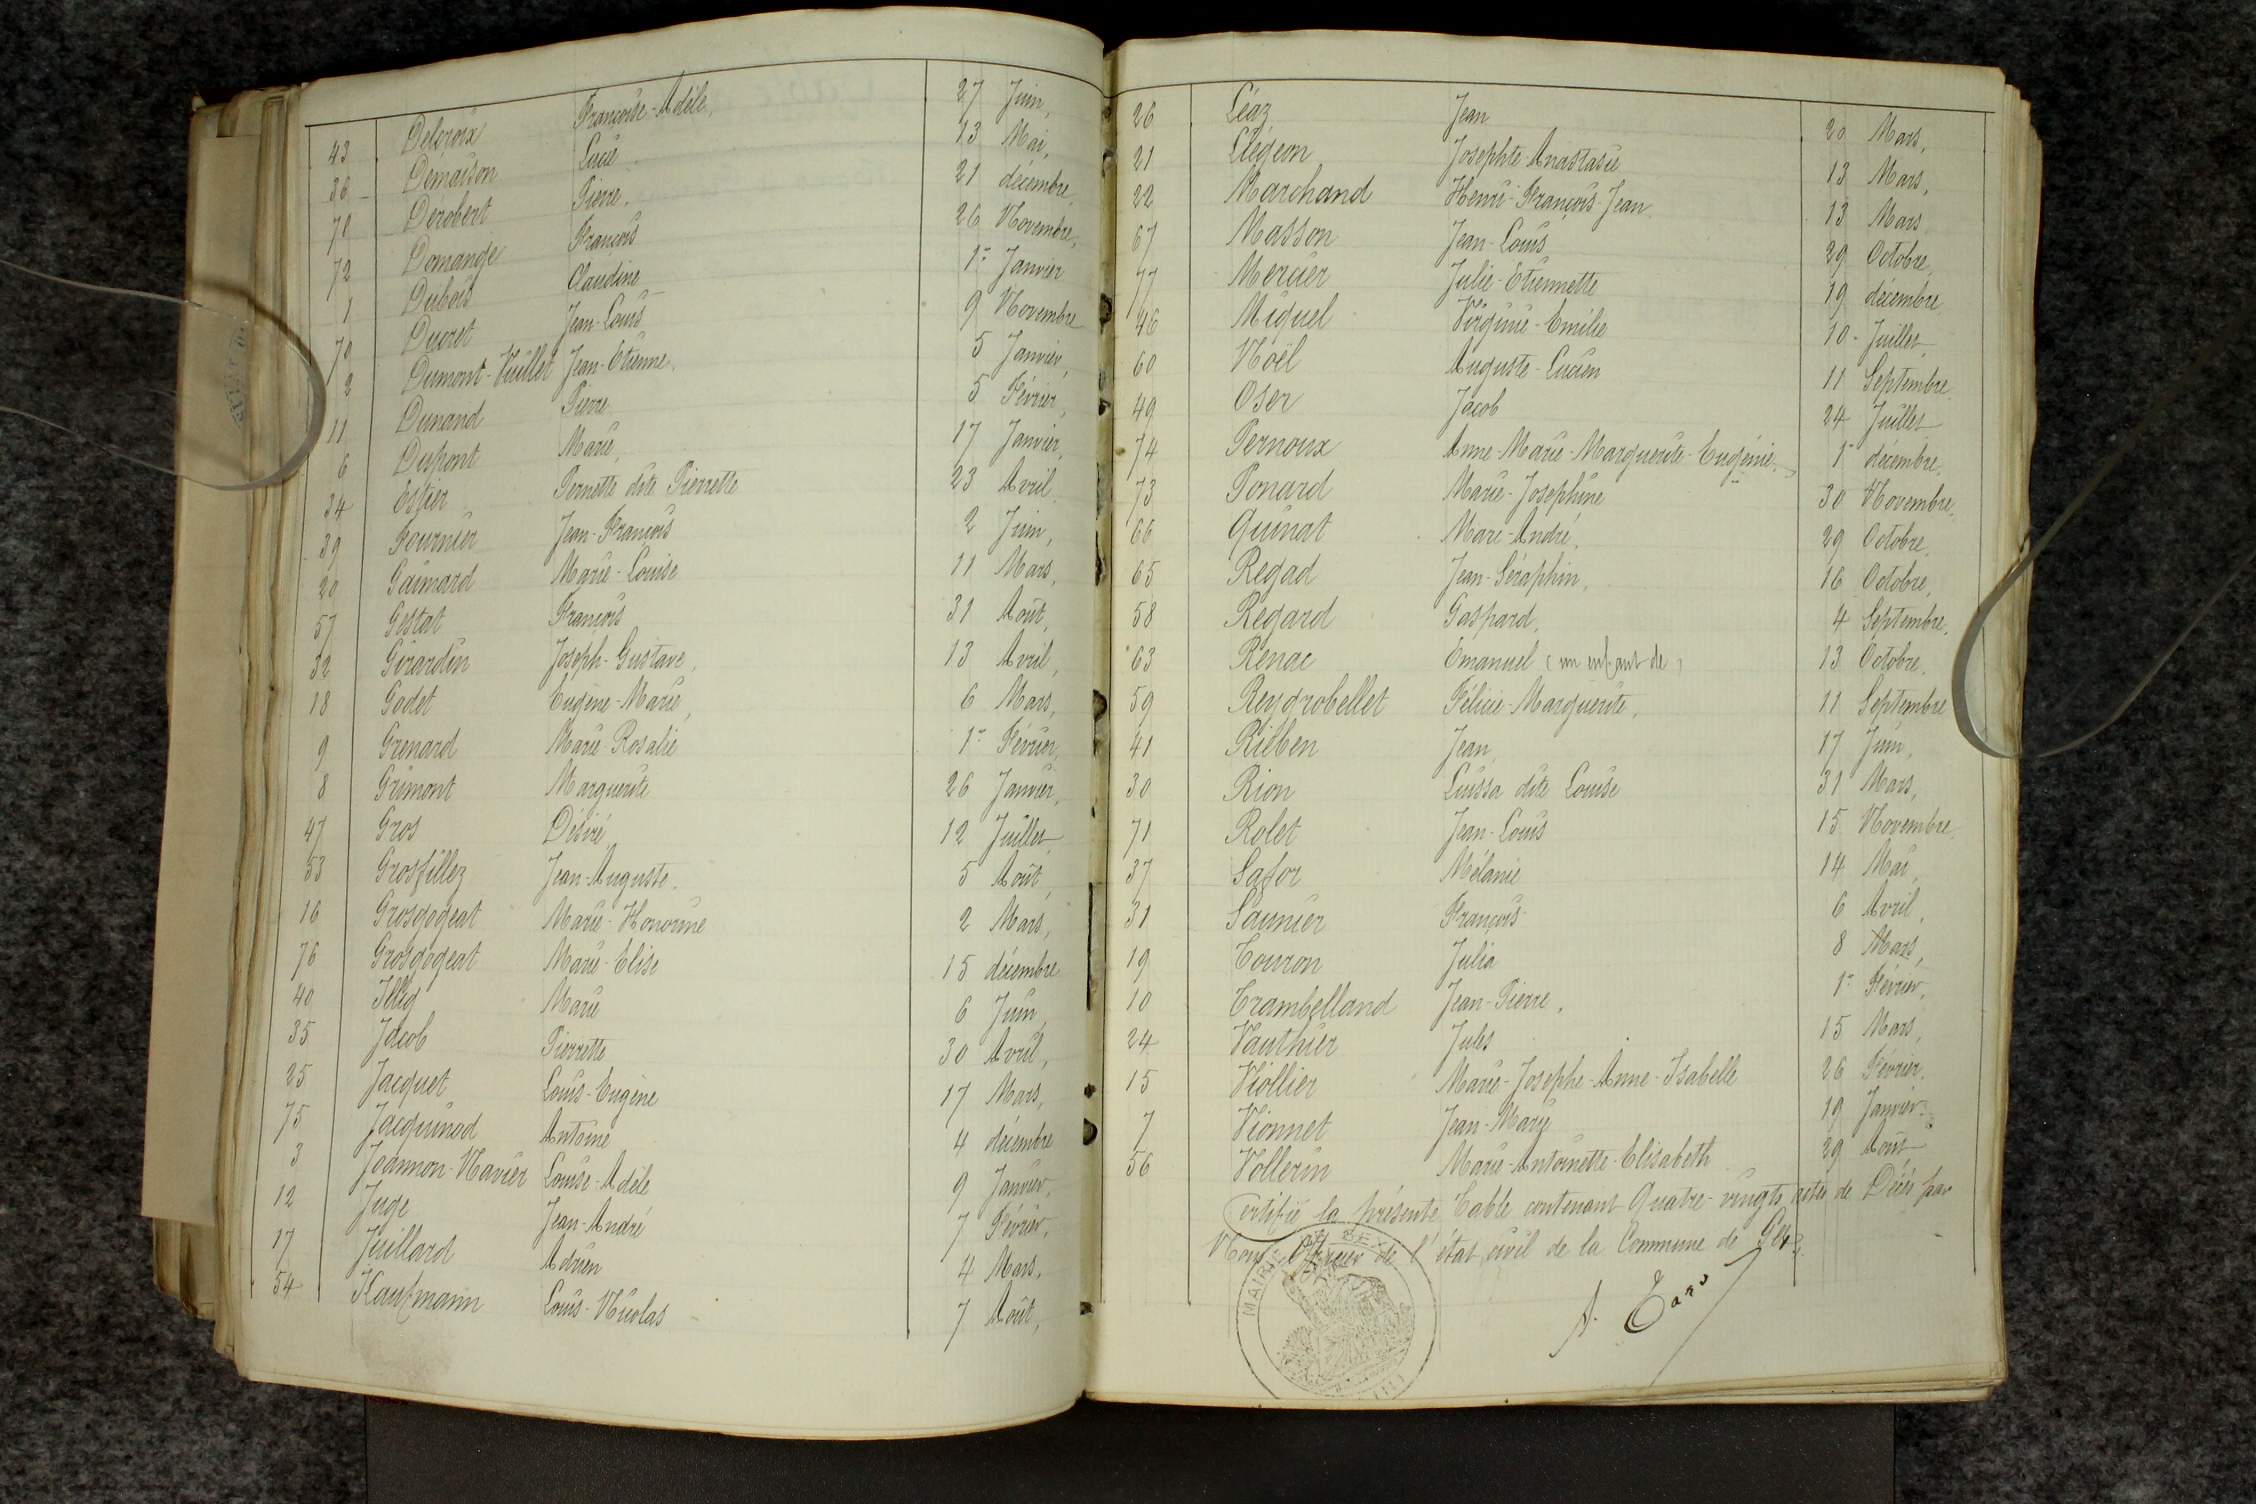 43 Delcroix Françoise-Adèle, 27 Juin,
36 Demaison Lucie 13 Mai,
78 Dérobert Pierre. 21 décembre,
72 Domange François 26 Novembre,
1 Dubois Claudine 1er Janvier
70 Ducret Jean-Louis 9 Novembre
2 Dumont-Vuillet Jean-Etienne. 5 Janvier,
11 Dunand Pierre 5 Février,
6 Dupont Marie, 17 Janvier,
34 Estier Pernette dite Pierrette 23 Avril
39 Fournier Jean-François 2 Juin,
20 Gaimard Marie-Louise 11 Mars,
57 Gestat François 31 Août,
32 Girardin Joseph-Gustave, 13 Avril,
18 Godet Eugène-Marie, 6 Mars,
9 Grenard Marie-Rosalie 1er Février,
8 Grimont Marguerite 26 Janvier,
47 Gros Désiré 12 Juillet,
53 Grosfillez Jean-Auguste. 5 Août,
16 Grosgogeat Marie-Honorine 2 Mars,
76 Grosgogeat Marie-Elise 15 décembre
40 Illig Marie 6 Juin,
35 Jacob Pierrette 30 Avril,
25 Jacquet Louis-Eugène 17 Mars,
75 Jacquinod Antoine 4 décembre
3 Joannon-Navier Louise-Adèle 9 Janvier,
12 Juge Jean-André 7 Février,
17 Juillard Adrien 4 Mars.
54 Kaufmann Louis-Nicolas 7 Août,
26 Léaz Jean 20 Mars,
21 Liégeon Josephte-Anastasie 13 Mars,
22 Marchand Henri-François-Jean 13 Mars
67 Masson Jean-Louis 29 Octobre,
77 Mercier Julie-Etiennette 19 décembre
46 Miquel Virginie-Emilie 10 Juillet,
60 Noël Auguste-Lucien 11 Septembre
49 Oser Jacob 24 Juillet
74 Pernoux Anne-Marie-Marguerite-Eugénie. 1er décembre,
73 Ponard Marie-Joséphine 30 Novembre,
66 Quinat Marc-André, 29 Octobre,
65 Regad Jean-Séraphin, 16 Octobre,
58 Regard Gaspard, 4 Septembre,
63 Renac Emanuel (un enfant de) 13 Octobre.
59 Reydrobellet Félicie-Marguerite, 11 Septembre
41 Rieben Jean, 17 Juin,
30 Rion Luissa dite Louise 31 Mars,
71 Rolet Jean-Louis 15 Novembre
37 Safor Mélanie 14 Mai,
31 Saunier François 6 Avril,
19 Touron Julia 8 Mars,
10 Trambelland Jean-Pierre, 1er Février,
24 Vauthier Jules 15 Mars,
15 Viollier Marie-Josephe-Anne-Isabelle 26 Février,
7 Vionnet Jean-Marie 19 Janvier
56 Vollerin Marie-Antoinette-Elisabeth 29 Août
Certifié la présente Table contenant Quatre-vingts actes de Décès par
Nous Officier de l'état civil de la Commune de Gex.
MAIRIE DE GEX